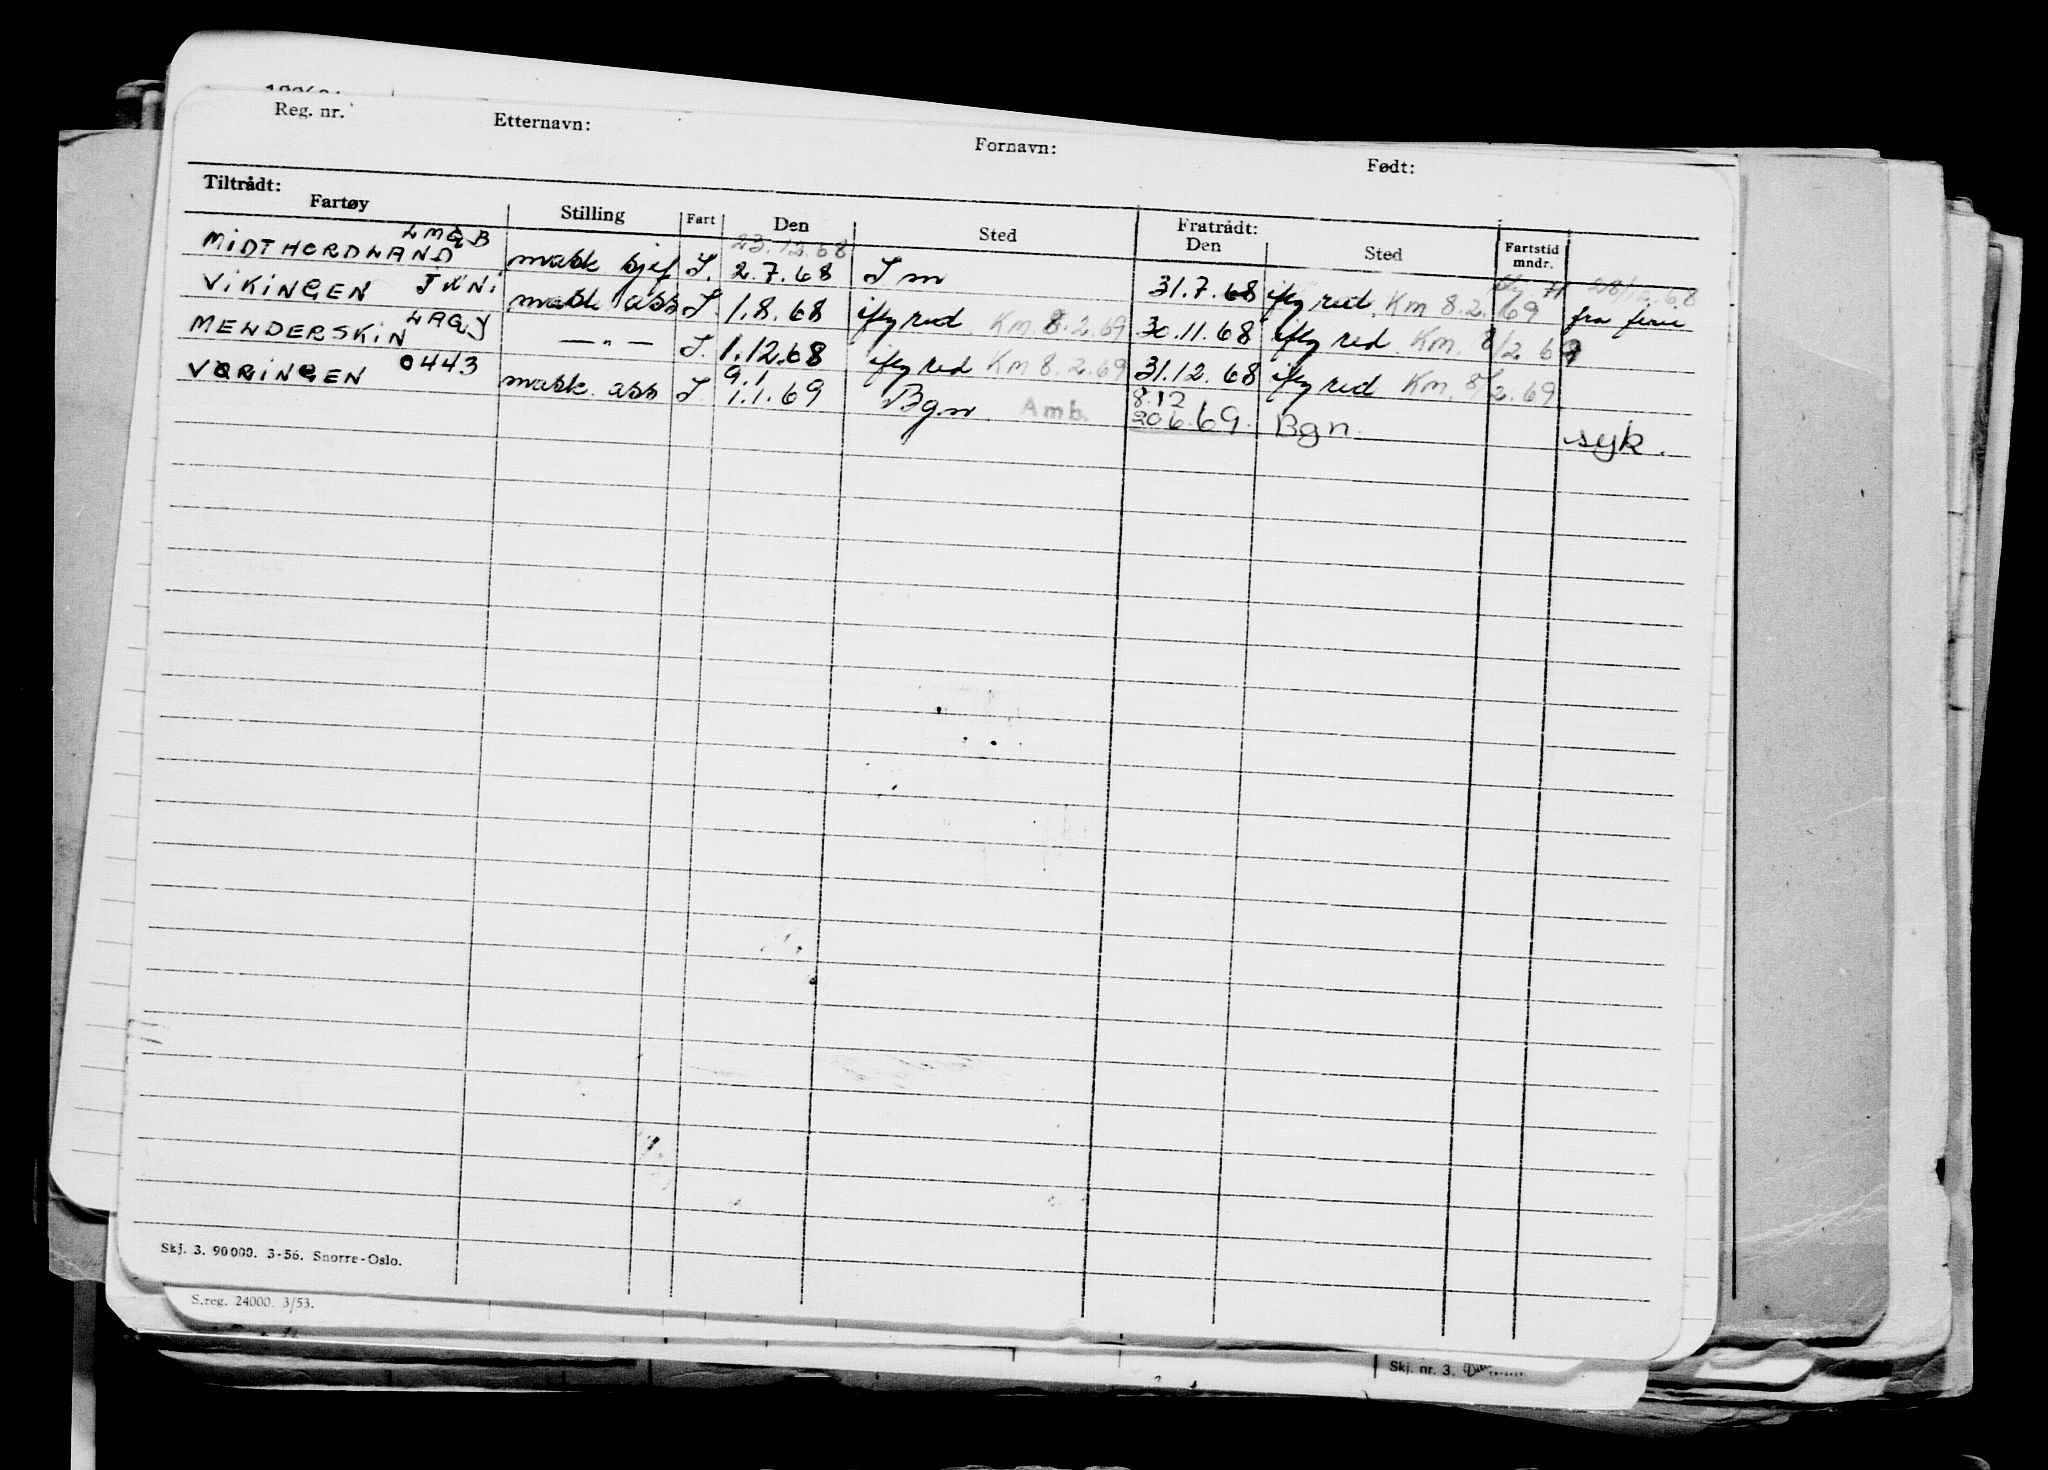 Reg. nr. Etternavn: Fornavn: Født:
Tiltrådt: Fratrådt:
Fartøy Stilling Fart Den Sted Den Sted Fartstid mndr.
LMGB 23.12.68 28/12.68
MIDTHORDLAND mask sjef I. 2.7.68 I m 31.7.68 iflg red. Km 8.2.69 fra ferie
VIKINGEN mask ass I. 1.8.68 iflg red Km 8.2.69 30.11.68 iflg red. Km. 8/2.69
MENDERSKIN LAGY — " — I. 1.12.68 iflg red Km 8.2.69 31.12.68 iflg red Km. 8/2.69
9.1 8.12
VØRINGEN 0443 mask. ass I. 1.1.69 Bgn Amb. 20.6.69. Bgn. syk.
Skj. 3. 90000. 3-56. Snorre-Oslo.
S.reg. 24000. 3/53.
Skj. nr. 3.